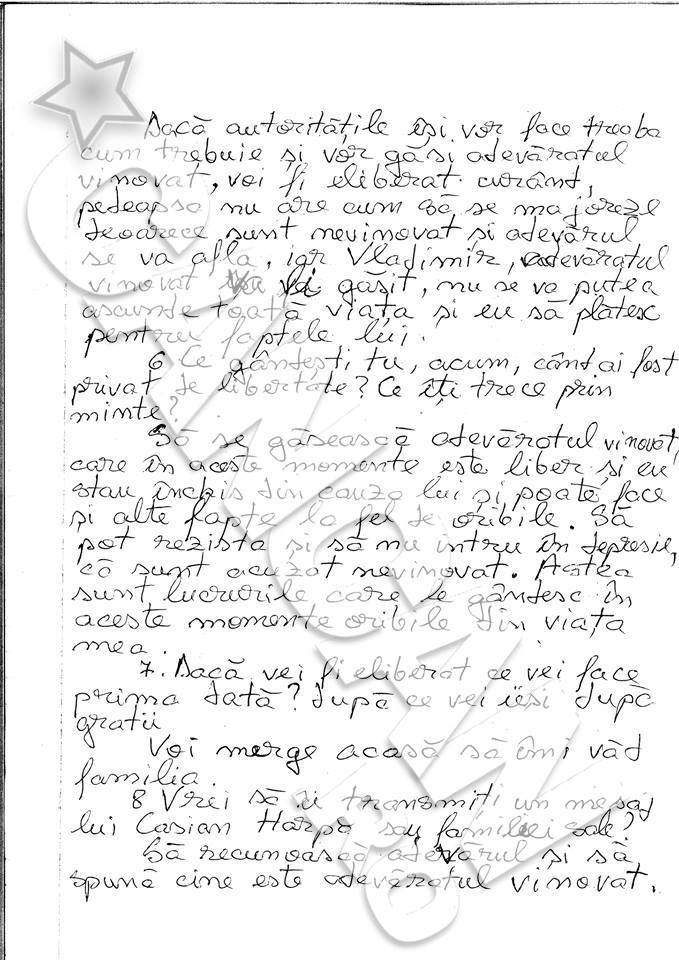 Dacă autoritățile își vor face treaba
cum trebuie și vor găsi adevăratul
vinovat, voi fi eliberat curând,
pedeapsa nu are cum să se majoreze
deoarece sunt nevinovat și adevărul
se va afla, iar Vladimir, adevăratul
vinovat va fi găsit, nu se va putea
ascunde toată viața și eu să plătesc
pentru faptele lui.
6 Ce gândești tu, acum, când ai fost
privat de libertate? Ce îți trece prin
minte?
Să se găsească adevăratul vinovat,
care în aceste momente este liber și eu
stau închis din cauza lui și poate face
și alte fapte la fel de oribile. Să
pot rezista și să nu intru în depresie,
că sunt acuzat nevinovat. Astea
sunt lucrurile care le gândesc în
aceste momente oribile din viața
mea.
7. Dacă vei fi eliberat ce vei face
prima dată? după ce vei ieși după
gratii
Voi merge acasă să îmi văd
familia.
8 Vrei să îi transmiți un mesaj
lui Casian Harpa sau familiei sale?
Să recunoască adevărul și să
spună cine este adevăratul vinovat.